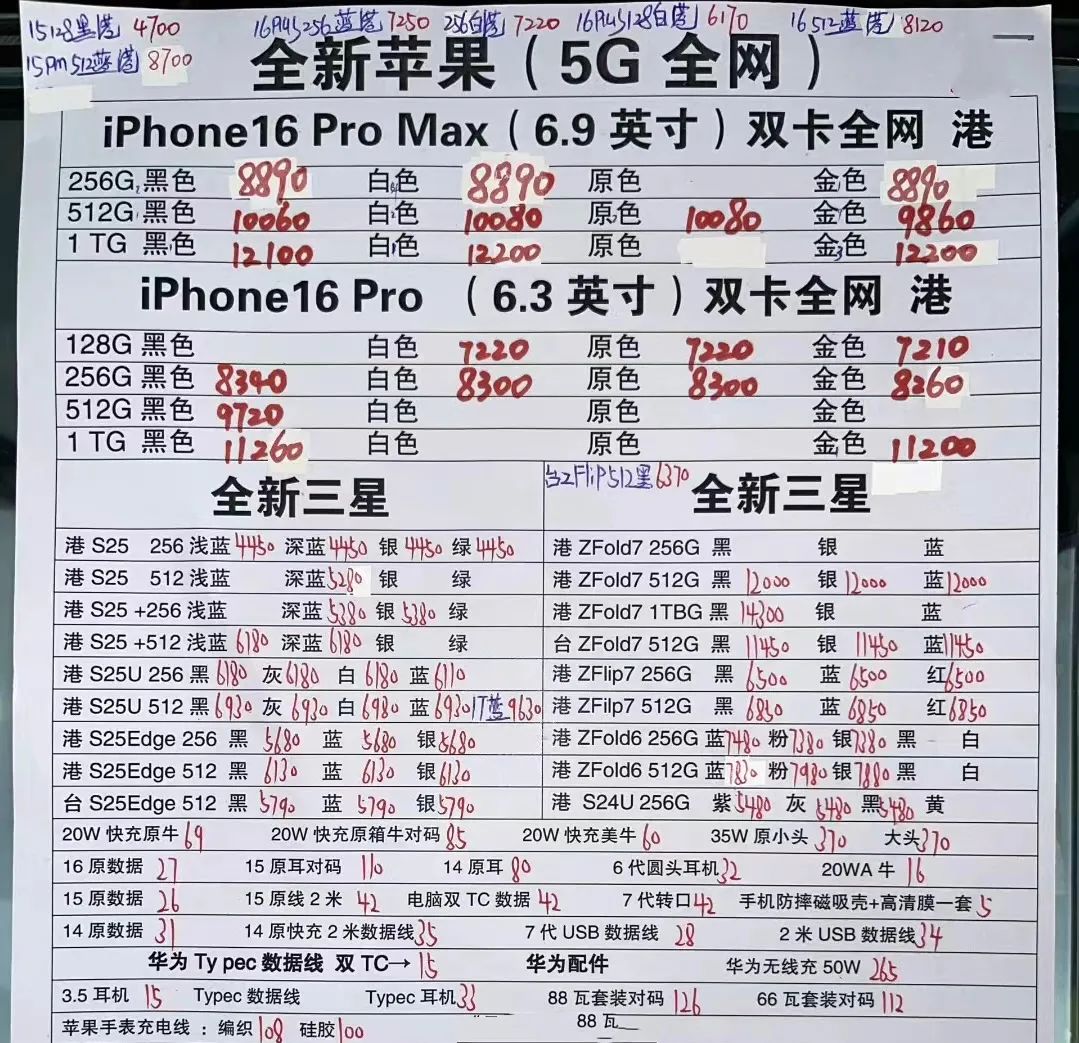 15 128黑港 4700 16Plus256蓝港 7250 256白港 7220 16Plus128白港 6170 16 512蓝港 8120
15Pm 512蓝港 8700
全新苹果（5G 全网）
iPhone16 Pro Max（6.9 英寸）双卡全网 港
256G 黑色 8890 白色 8890 原色 金色 8890
512G 黑色 10060 白色 10080 原色 10080 金色 9860
1 TG 黑色 12100 白色 12200 原色 金色 12200
iPhone16 Pro （6.3 英寸）双卡全网 港
128G 黑色 白色 7220 原色 7220 金色 7210
256G 黑色 8340 白色 8300 原色 8300 金色 8260
512G 黑色 9720 白色 原色 金色
1 TG 黑色 11260 白色 原色 金色 11200
台ZFliP512黑6370
全新三星 全新三星
港 S25 256 浅蓝 4450 深蓝 4450 银 4450 绿 4450 港 ZFold7 256G 黑 银 蓝
港 S25 512 浅蓝 深蓝 5280 银 绿 港 ZFold7 512G 黑 12000 银 12000 蓝 12000
港 S25 +256 浅蓝 深蓝 5380 银 5380 绿 港 ZFold7 1TBG 黑 14300 银 蓝
港 S25 +512 浅蓝 6180 深蓝 6180 银 绿 台 ZFold7 512G 黑 11450 银 11450 蓝 11450
港 S25U 256 黑 6180 灰 6180 白 6180 蓝 6110 港 ZFlip7 256G 黑 6500 蓝 6500 红 6500
港 S25U 512 黑 6930 灰 6930 白 6980 蓝 6930 1T蓝 9630 港 ZFilp7 512G 黑 6850 蓝 6850 红 6850
港 S25Edge 256 黑 5680 蓝 5680 银 5680 港 ZFold6 256G 蓝 7480 粉 7380 银 7380 黑 白
港 S25Edge 512 黑 6130 蓝 6130 银 6130 港 ZFold6 512G 蓝 7830 粉 7980 银 7880 黑 白
台 S25Edge 512 黑 5790 蓝 5790 银 5790 港 S24U 256G 紫 5480 灰 5480 黑 5480 黄
20W 快充原牛 69 20W 快充原箱牛对码 85 20W 快充美牛 60 35W 原小头 370 大头 370
16 原数据 27 15 原耳对码 110 14 原耳 80 6 代圆头耳机 32 20WA 牛 16
15 原数据 26 15 原线 2 米 42 电脑双 TC 数据 42 7 代转口 42 手机防摔磁吸壳+高清膜一套 5
14 原数据 31 14 原快充 2 米数据线 35 7 代 USB 数据线 28 2 米 USB 数据线 34
华为 Ty pec 数据线 双 TC→ 15 华为配件 华为无线充 50W 265
3.5 耳机 15 Typec 数据线 Typec 耳机 33 88 瓦套装对码 126 66 瓦套装对码 112
苹果手表充电线 ：编织 108 硅胶 100 88 瓦